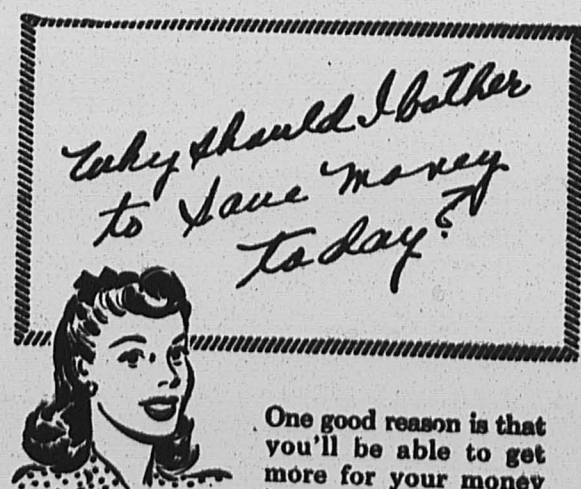 Why should I bother
to save money
today?
One good reason is that
you'll be able to get
more for your money